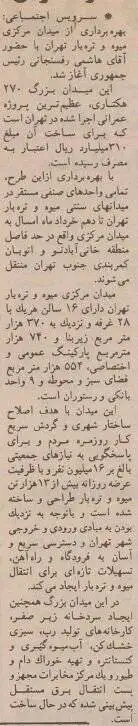 سرویس اجتماعی:
بهره‌برداری از میدان مرکزی
میوه و تره‌بار تهران با حضور
آقای هاشمی رفسنجانی رئیس
جمهوری آغاز شد.
این میدان بزرگ ۲۷۰
هکتاری، عظیم‌ترین پروژه
عمرانی اجرا شده در تهران است
که برای ساخت آن مبلغ
۳۱۰میلیارد ریال اعتبار به
مصرف رسیده است.
با بهره‌برداری ازاین طرح،
تمامی واحدهای صنفی مستقر در
میدانهای سنتی میوه و تره‌بار
تهران تا دهم خرداد ماه امسال به
میدان مرکزی واقع در حد فاصل
منطقه خانی‌آبادنو و اتوبان
کمربندی جنوب تهران منتقل
می‌شوند.
میدان مرکزی میوه و تره‌بار
تهران دارای ۱۶ سالن هریک با
۲۸ غرفه و نزدیک به ۳۷۰ هزار
متر مربع زیربنا و ۷۴۰ هزار
مترمربع پارکینگ عمومی و
اختصاصی، ۵۵۴ هزار متر مربع
فضای سبز و محوطه و ۹ واحد
بانکی و رستوران است.
این میدان با هدف اصلاح
ساختار شهری و گردش سریع
کار روزمره مردم و برای
پاسخگویی به نیازهای جمعیتی
بالغ بر ۱۶میلیون نفر و با ظرفیت
عرضه روزانه بیش از ۱۳هزار تن
میوه و تره‌بار طراحی و ساخته
شده است و باتوجه به نزدیک
بودن به مبادی ورودی و خروجی
شهر تهران و دسترسی سریع و
آسان به فرودگاه و راه‌آهن،
تسهیلات تازه‌ای برای انتقال
میوه و تره‌بار ایجاد می‌کند.
در این میدان بزرگ همچنین
ایجاد سردخانه زیر صفر،
کارخانه‌های تولید رب، سبزی
خشک‌کن، آب‌میوه‌گیری و
کنستانتره و تهیه خوراک دام و
طیور و یک مرکز مخابرات مجهز و
پست انتقال برق مستقل
پیش‌بینی شده که در حال ساخت
است.